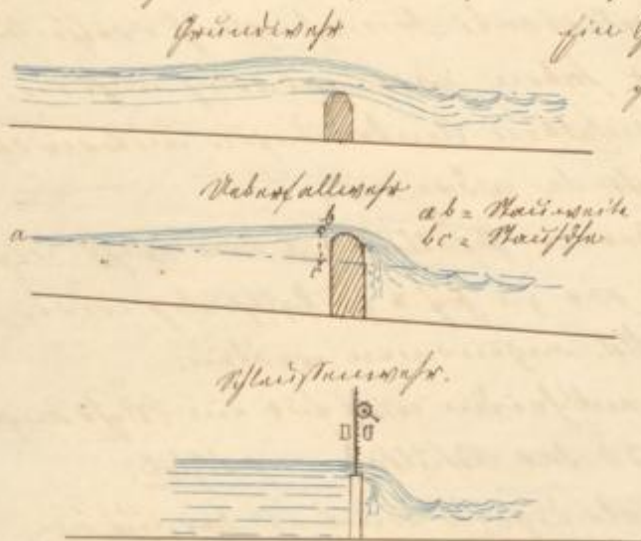 Grundwehr
Ein
Ueberfallwehr
a
b
c
ab = Stauweite
bc = Stauhöhe
Schleußenwehr.